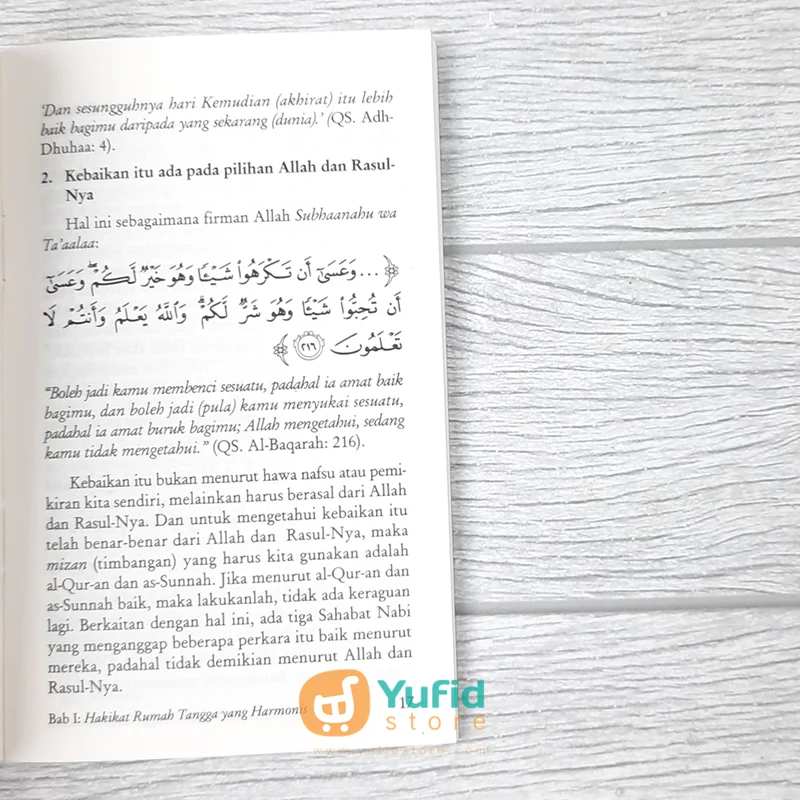 'Dan sesungguhnya hari Kemudian (akhirat) itu lebih
baik bagimu daripada yang sekarang (dunia).' (QS. Adh-
Dhuhaa: 4).
2. Kebaikan itu ada pada pilihan Allah dan Rasul-
Nya
Hal ini sebagaimana firman Allah Subhaanahu wa
Ta'aalaa:
﴿ ... وَعَسَىٰٓ أَن تَكْرَهُوا۟ شَيْـًٔا وَهُوَ خَيْرٌ لَّكُمْ ۖ وَعَسَىٰٓ
أَن تُحِبُّوا۟ شَيْـًٔا وَهُوَ شَرٌّ لَّكُمْ ۗ وَٱللَّهُ يَعْلَمُ وَأَنتُمْ لَا
تَعْلَمُونَ ٢١٦ ﴾
"Boleh jadi kamu membenci sesuatu, padahal ia amat baik
bagimu, dan boleh jadi (pula) kamu menyukai sesuatu,
padahal ia amat buruk bagimu; Allah mengetahui, sedang
kamu tidak mengetahui." (QS. Al-Baqarah: 216).
Kebaikan itu bukan menurut hawa nafsu atau pemi-
kiran kita sendiri, melainkan harus berasal dari Allah
dan Rasul-Nya. Dan untuk mengetahui kebaikan itu
telah benar-benar dari Allah dan Rasul-Nya, maka
mizan (timbangan) yang harus kita gunakan adalah
al-Qur-an dan as-Sunnah. Jika menurut al-Qur-an dan
as-Sunnah baik, maka lakukanlah, tidak ada keraguan
lagi. Berkaitan dengan hal ini, ada tiga Sahabat Nabi
yang menganggap beberapa perkara itu baik menurut
mereka, padahal tidak demikian menurut Allah dan
Rasul-Nya.
Bab I: Hakikat Rumah Tangga yang Harmonis 17
Yufid
store
www.yufidstore.com